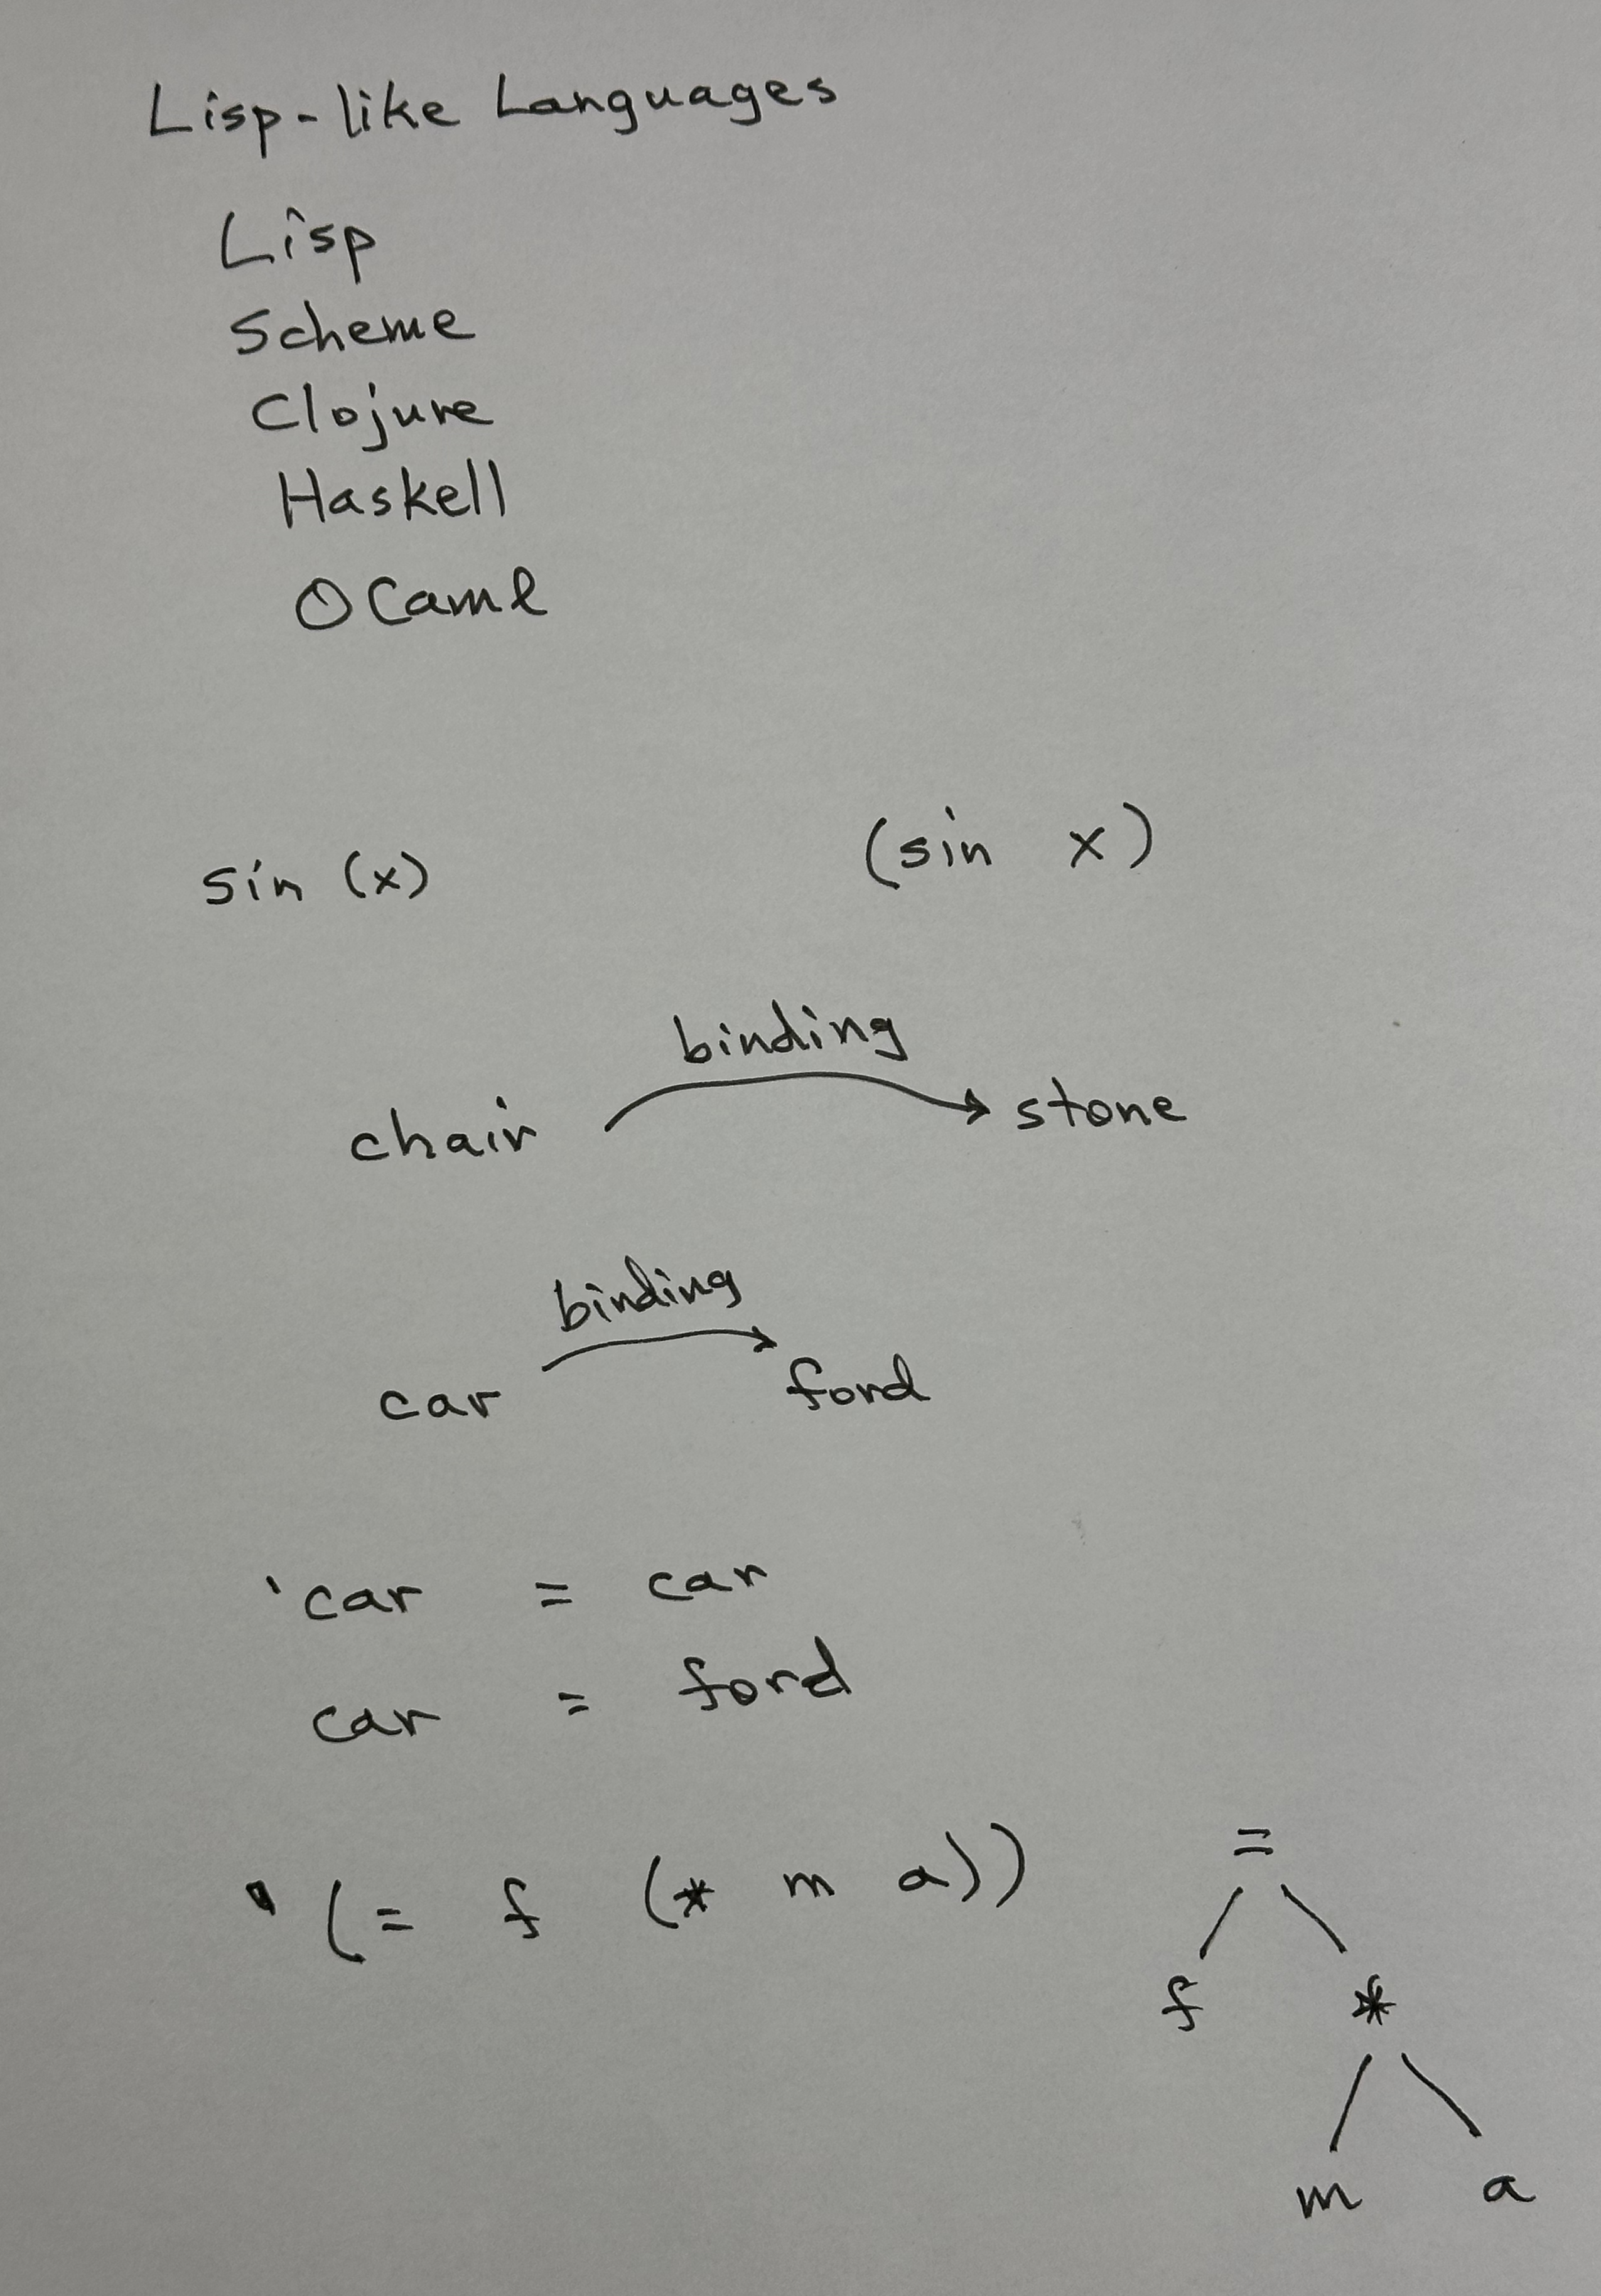 Lisp-like Languages
Lisp
Scheme
Clojure
Haskell
OCaml
sin (x) (sin x)
binding
chair stone
binding
car ford
'car = car
car = ford
'(= f (* m a))
=
f *
m a